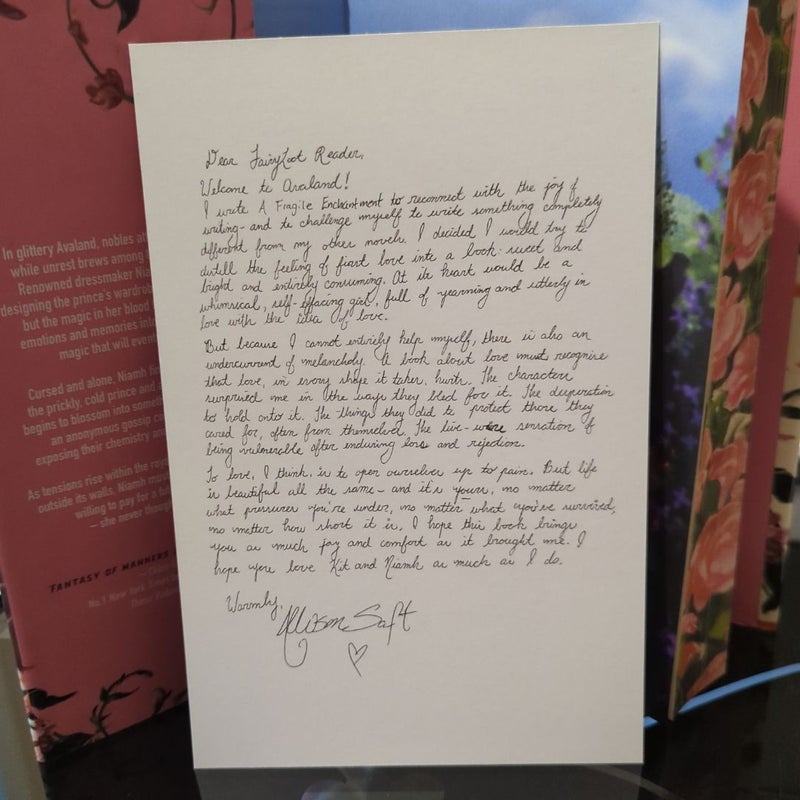 Dear FairyLoot Reader,
Welcome to Avaland!
I wrote A Fragile Enchantment to reconnect with the joy of
writing- and to challenge myself to write something completely
different from my other novels. I decided I would try to
distill the feeling of first love into a book: sweet and
bright and entirely consuming. At its heart would be a
whimsical, self-effacing girl, full of yearning and utterly in
love with the idea of love.
But because I cannot entirely help myself, there is also an
undercurrent of melancholy. A book about love must recognize
that love, in every shape it takes, hurts. The characters
surprised me in the ways they bled for it. The desperation
to hold onto it. The things they did to protect those they
cared for, often from themselves. The live-wire sensation of
being vulnerable after enduring loss and rejection.
To love, I think, is to open ourselves up to pain. But life
is beautiful all the same- and it's yours, no matter
what pressures you're under, no matter what you've survived,
no matter how short it is, I hope this book brings
you as much joy and comfort as it brought me. I
hope you love Kit and Niamh as much as I do.
Warmly,
Allison Saft
In glittery Avaland, nobles
while unrest brews among
Renowned dressmaker
designing the prince's
but the magic in her blood
emotions and memories into
magic that will
Cursed and alone, Niamh
the prickly, cold prince
begins to blossom into
an anonymous gossip
exposing their chemistry
As tensions rise within the
outside its walls, Niamh
willing to pay for a
– she never
FANTASY OF MANNERS
No.1 New York